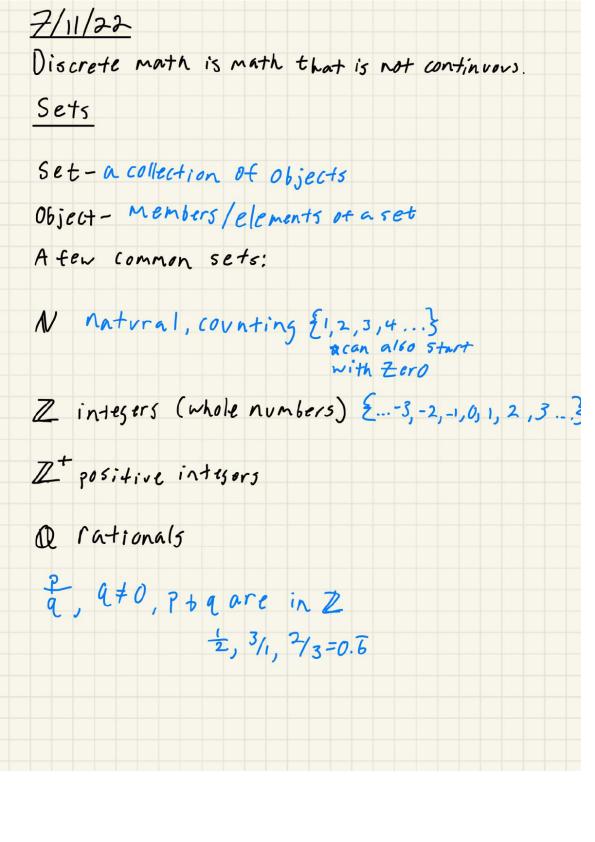 7/11/22
Discrete math is math that is not continuous.
Sets
Set - a collection of objects
Object - Members/elements of a set
A few common sets:
ℕ natural, counting {1,2,3,4...}
*can also start
with zero
ℤ integers (whole numbers) {...-3,-2,-1,0,1,2,3...}
ℤ⁺ positive integers
ℚ rationals
p/q, q≠0, p & q are in ℤ
1/2, 3/1, 2/3=0.6̅